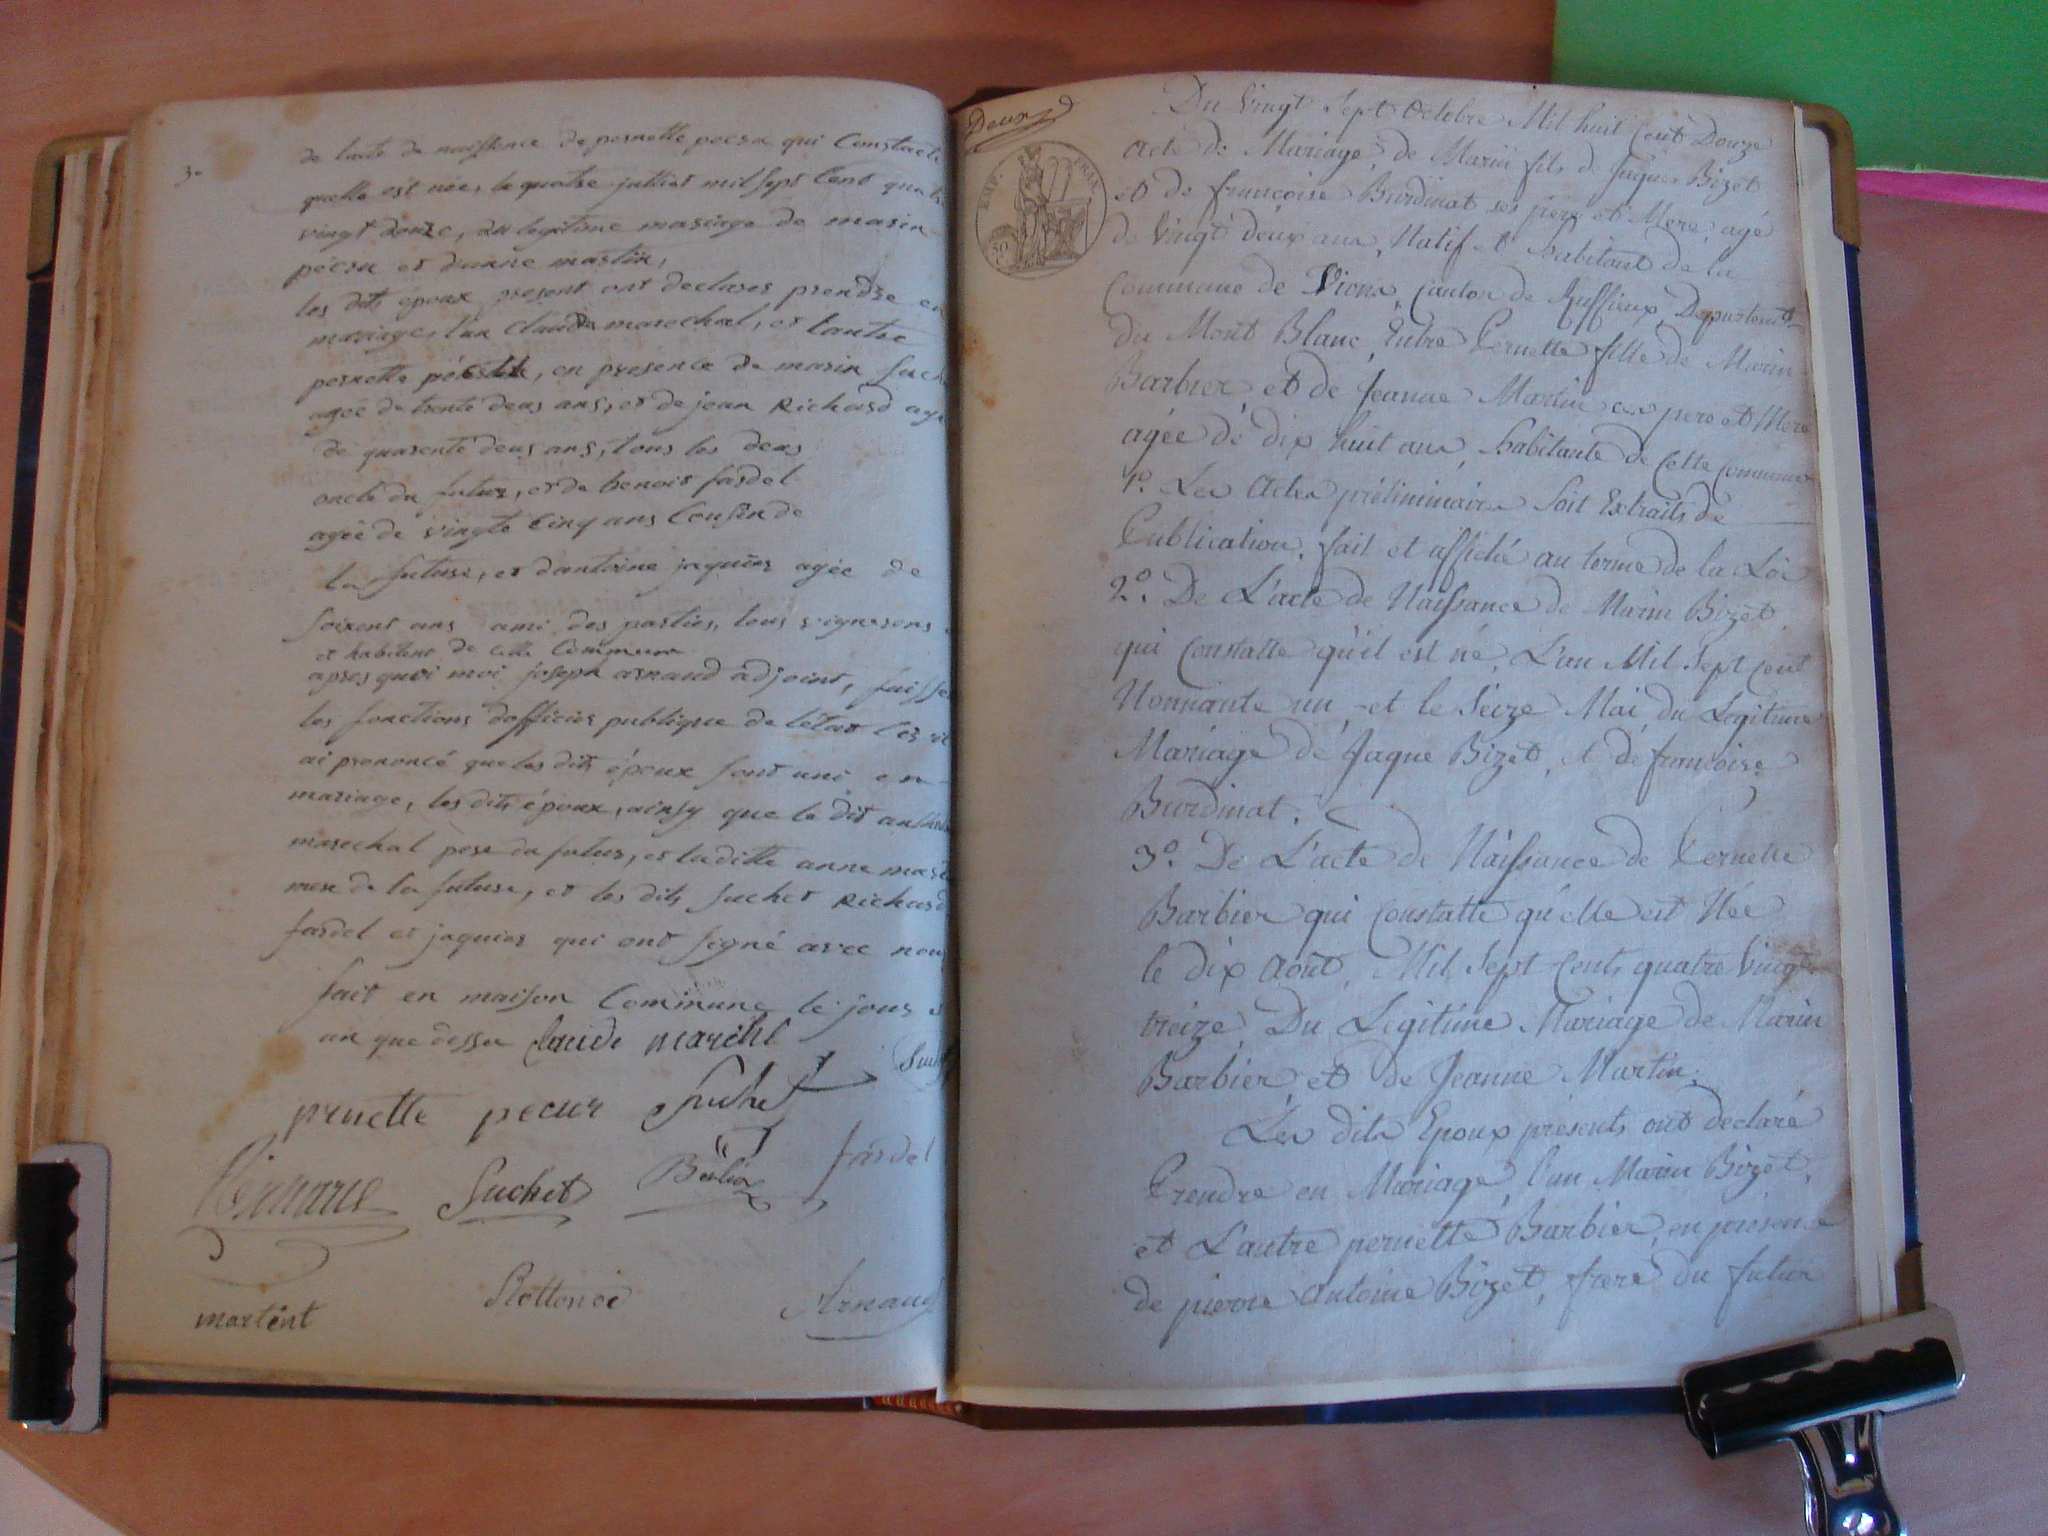 3º
de lacte de naissance de pernette pecsa qui Constacte
quelle est née, le quatre julliet mil sept Cent quatre
vingt douze, du legitime mariage de marin
pécsa et danne martin,
les dits époux present ont declares prendre en
mariage, lun Claude marechal, et lautre
pernette, en presence de marin Suchet
agée de trente deus ans, et de jean Richard agée
de quarente deus ans, tous les deus
oncle du futur, et de benoit fardel
agée de vingte Cinq ans Cousin de
la future, et dantoine jaquier agée de
soixent ans ami des parties, tous vignerons
et habitent de cette Commune
apres quoi moi joseph arnaud adjoint, faissent
les fonctions dofficier publique de létat Civil
ai prononcé que les dits époux sont uni en
mariage, les dits époux, ainsy que le dit
marechal pere du futur, et laditte anne martin
mere de la future, et les dits Suchet Richard
fardel et jaquier qui ont signé avec nous
fait en maison Commune le jour et
an que dessu Claude marchl
pruette pecur Suchet
fardel
Suchet
martint
Arnaud
Deux
EMP. FRAN.
50
Du Vingt Sept Octobre Mil huit Cent Douze
Acte de Mariage, de Marin fils de Jaques Bizet
et de françoise Burdinat ses père et Mere, agé
de Vingt deux ans, Natif et habitant de la
Commune de Vions, Canton de Ruffieux, Departement
du Mont Blanc, Entre Pernette fille de Marin
Barbier et de Jeanne Martin ses pere et Mere
agée de dix huit ans, habitante de Cette Commune
1º. Les Actes préliminaires Soit Extraits de
Publication, fait et affiché au terme de la Loi
2º. De L'acte de Naissance de Marin Bizet
qui Constatte qu'il est né, L'an Mil Sept cent
Nonnante un, et le Seize Mai, du Legitime
Mariage de Jaque Bizet, et de françoise
Burdinat.
3º. De L'acte de Naissance de Pernette
Barbier qui Constatte qu'elle est Née
le dix Août, Mil Sept Cents quatre Vingt
treize, Du Legitime Mariage de Marin
Barbier, et de Jeanne Martin.
Les dits Epoux présents ont declaré
Prendre en Mariage, l'un Marin Bizet,
et L'autre pernette Barbier, en présence
de pierre Antoine Bizet, frere du futur